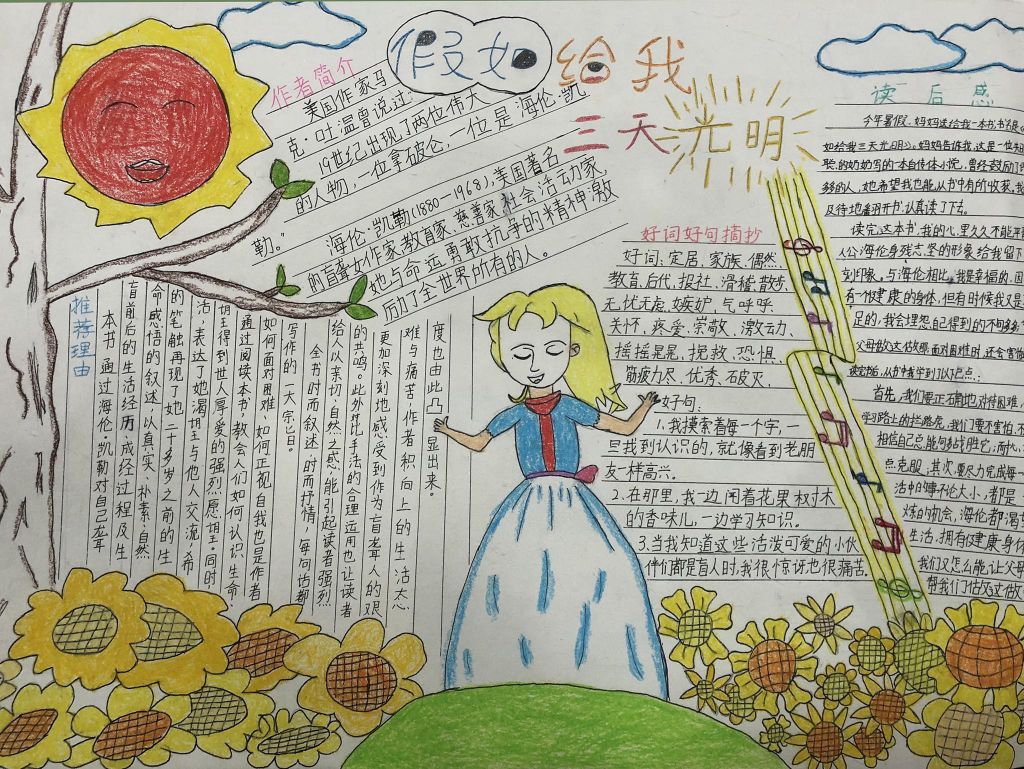 假如给我
三天光明
作者简介
美国作家马
克·吐温曾说过:
19世纪出现了两位伟大
的人物,一位拿破仑,一位是海伦·凯
勒。"
海伦·凯勒(1880-1968),美国著名
的盲聋女作家、教育家、慈善家、社会活动家,
她与命运勇敢抗争的精神激
励了全世界所有的人。
推荐理由
本书通过海伦·凯勒对自己聋
盲前后的生活经历,成经过程及生
命感悟的叙述,以真实、朴素、自然
的笔触再现了她二十多岁之前的生
活,表达了她渴望与他人交流,希
望得到世人厚爱的强烈愿望。同时
通过阅读本书,教会人们如何认识生命,
如何面对困难,如何正视自我也是作者
写作的一大宗旨。
全书时而叙述,时而抒情,每句话都
给人以亲切、自然之感,能引起读者强烈
的共鸣。此外对比手法的合理运用也让读者
更加深刻地感受到作为盲聋人的艰
难与痛苦,作者积极向上的生活态
度也由此凸显出来。
好词好句摘抄
好词:定居、家族、偶然、
教育、后代、报社、滑稽、散步、
无忧无虑、嫉妒、气呼呼、
关怀、疼爱、崇敬、激动、
摇摇晃晃、挽救、恐惧、
筋疲力尽、优秀、石皮灭、
好句:
1、我摸索着每一个字,一
旦找到认识的,就像看到老朋
友一样高兴。
2、在那里,我一边闻着花果树木
的香味儿,一边学习知识。
3、当我知道这些活泼可爱的小伙
伴们都是盲人时,我很惊讶也很痛苦。
读后感
今年暑假,妈妈送给我一本书,书名是
如给我三天光明》。妈妈告诉我,这是一位
聪的奶奶写的一本自传体小说,曾经鼓励了
多的人,她希望我也能从书中有所收获,我
及待地翻开书,认真读了下去。
读完这本书,我的心里久久不能平
人公海伦身残志坚的形象给我留下
刻印象,与海伦相比,我是幸福的,因
有一个健康的身体,但有时候我又是
足的,我会埋怨自己得到的不够多
父母做
面对困难时,还会害怕
从书中我学到了以下几点:
首先,我们要正确地对待困难,
学习路上的拦路虎,我们不要害怕,
相信自己总能够战胜它,
点克服,其次,要尽力完成每
活中的事不论大小,都是
炼的机会,海伦都渴
生活,拥有健康身体
我们又怎么能让父母
帮我们做这做